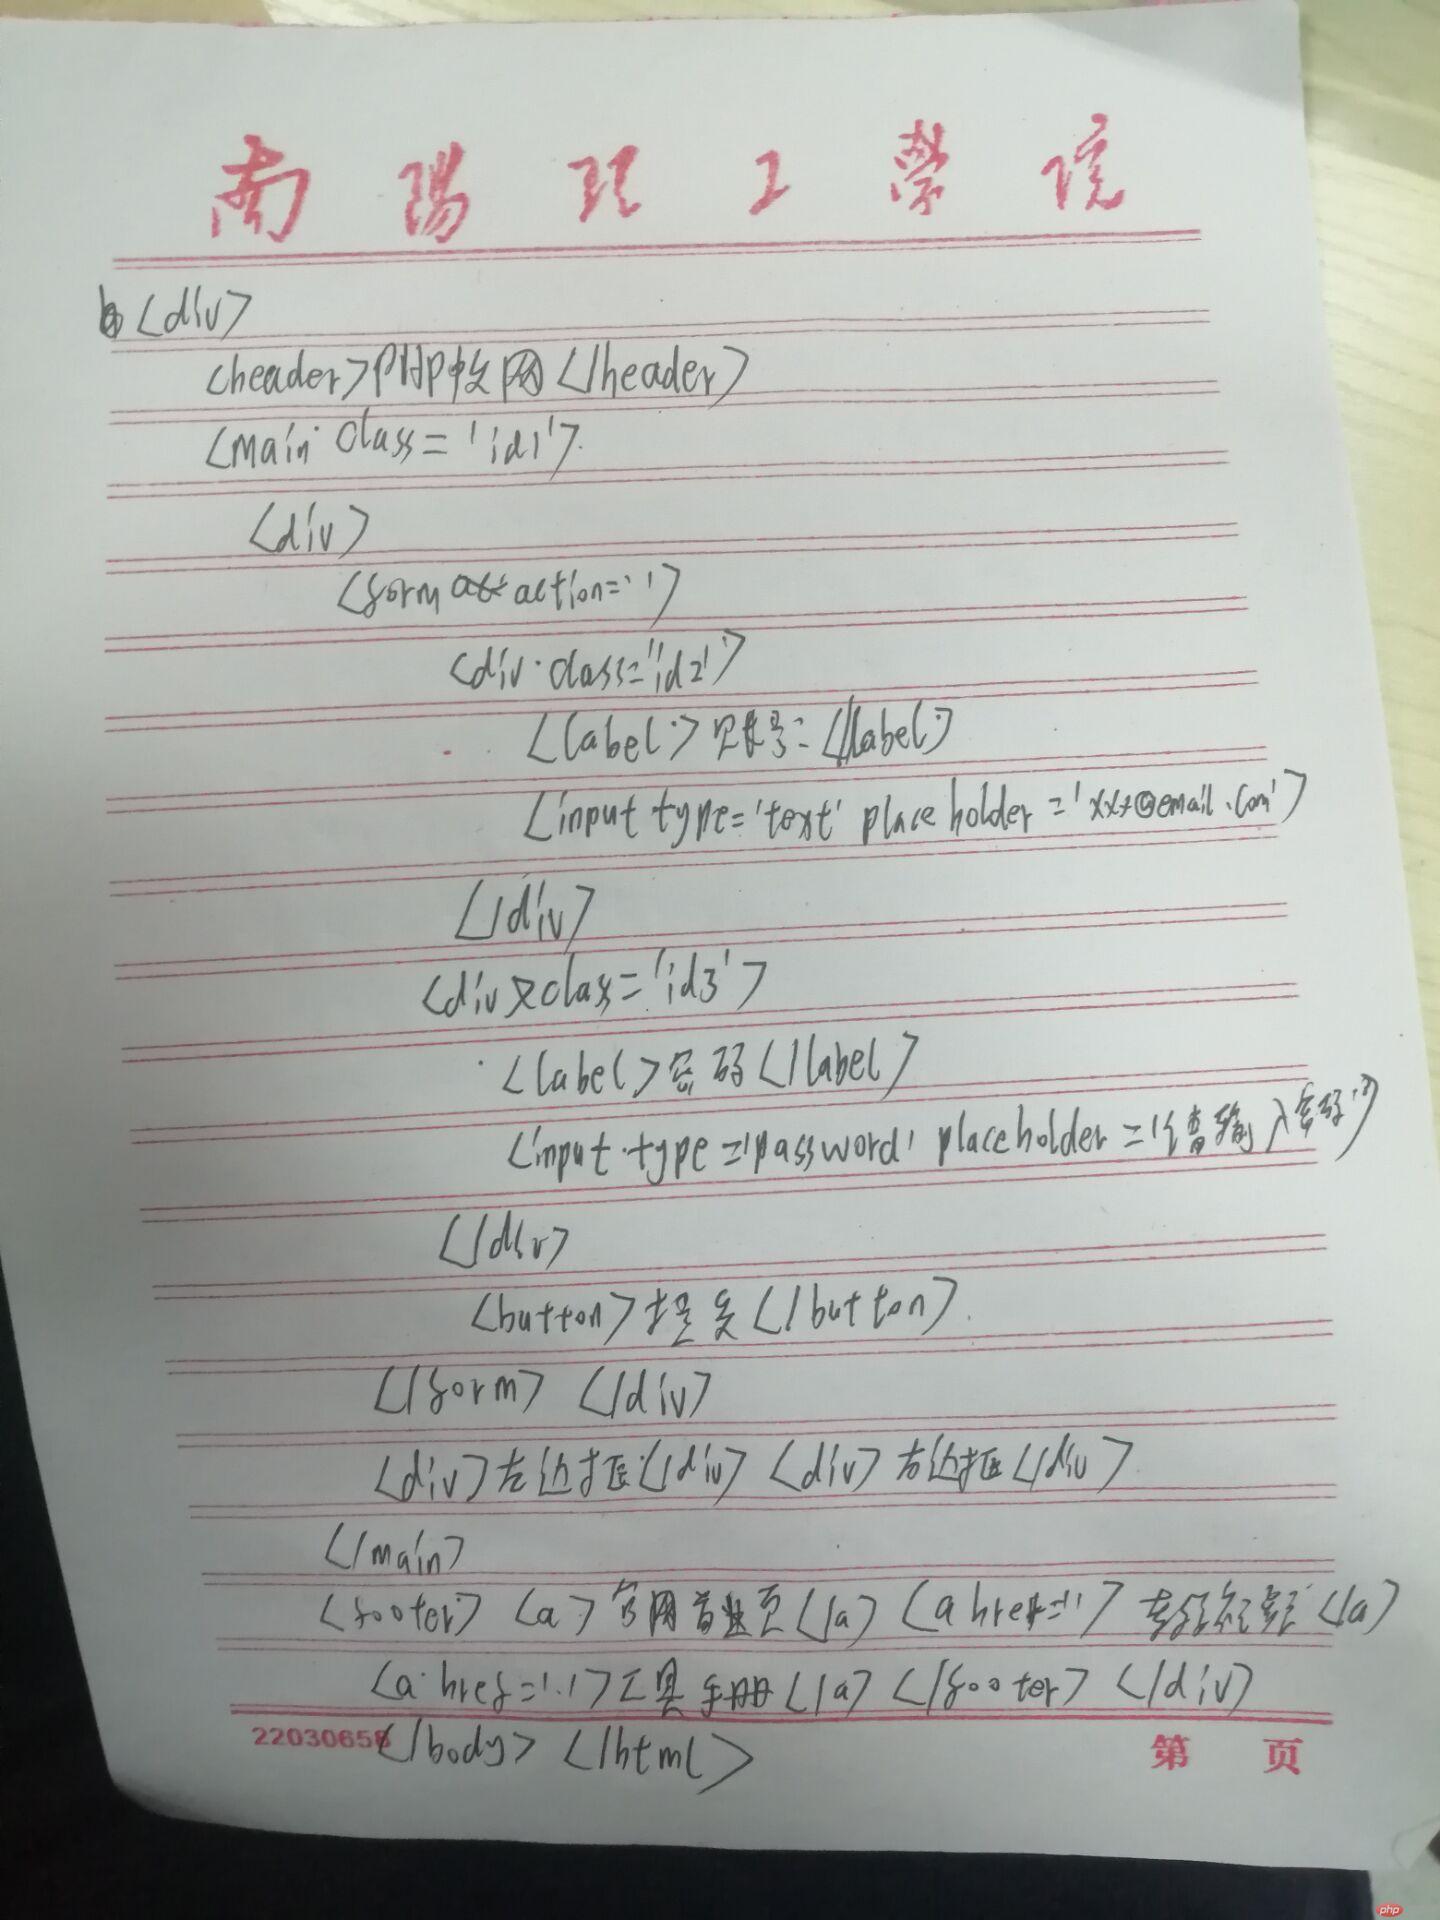 南陽理工學院
<div>
<header>PHP中文网</header>
<main class='id1'>
<div>
<form action=''>
<div class='id2'>
<label>账号:</label>
<input type='text' placeholder='xxx@email.com'>
</div>
<div class='id3'>
<label>密码</label>
<input type='password' placeholder='输入密码'>
</div>
<button>提交</button>
</form> </div>
<div>左边框</div> <div>右边框</div>
</main>
<footer> <a>官网首页</a> <a href=''></a>
<a href=''>工具手册</a> </footer> </div>
2203065
</body> </html>
第 页
php